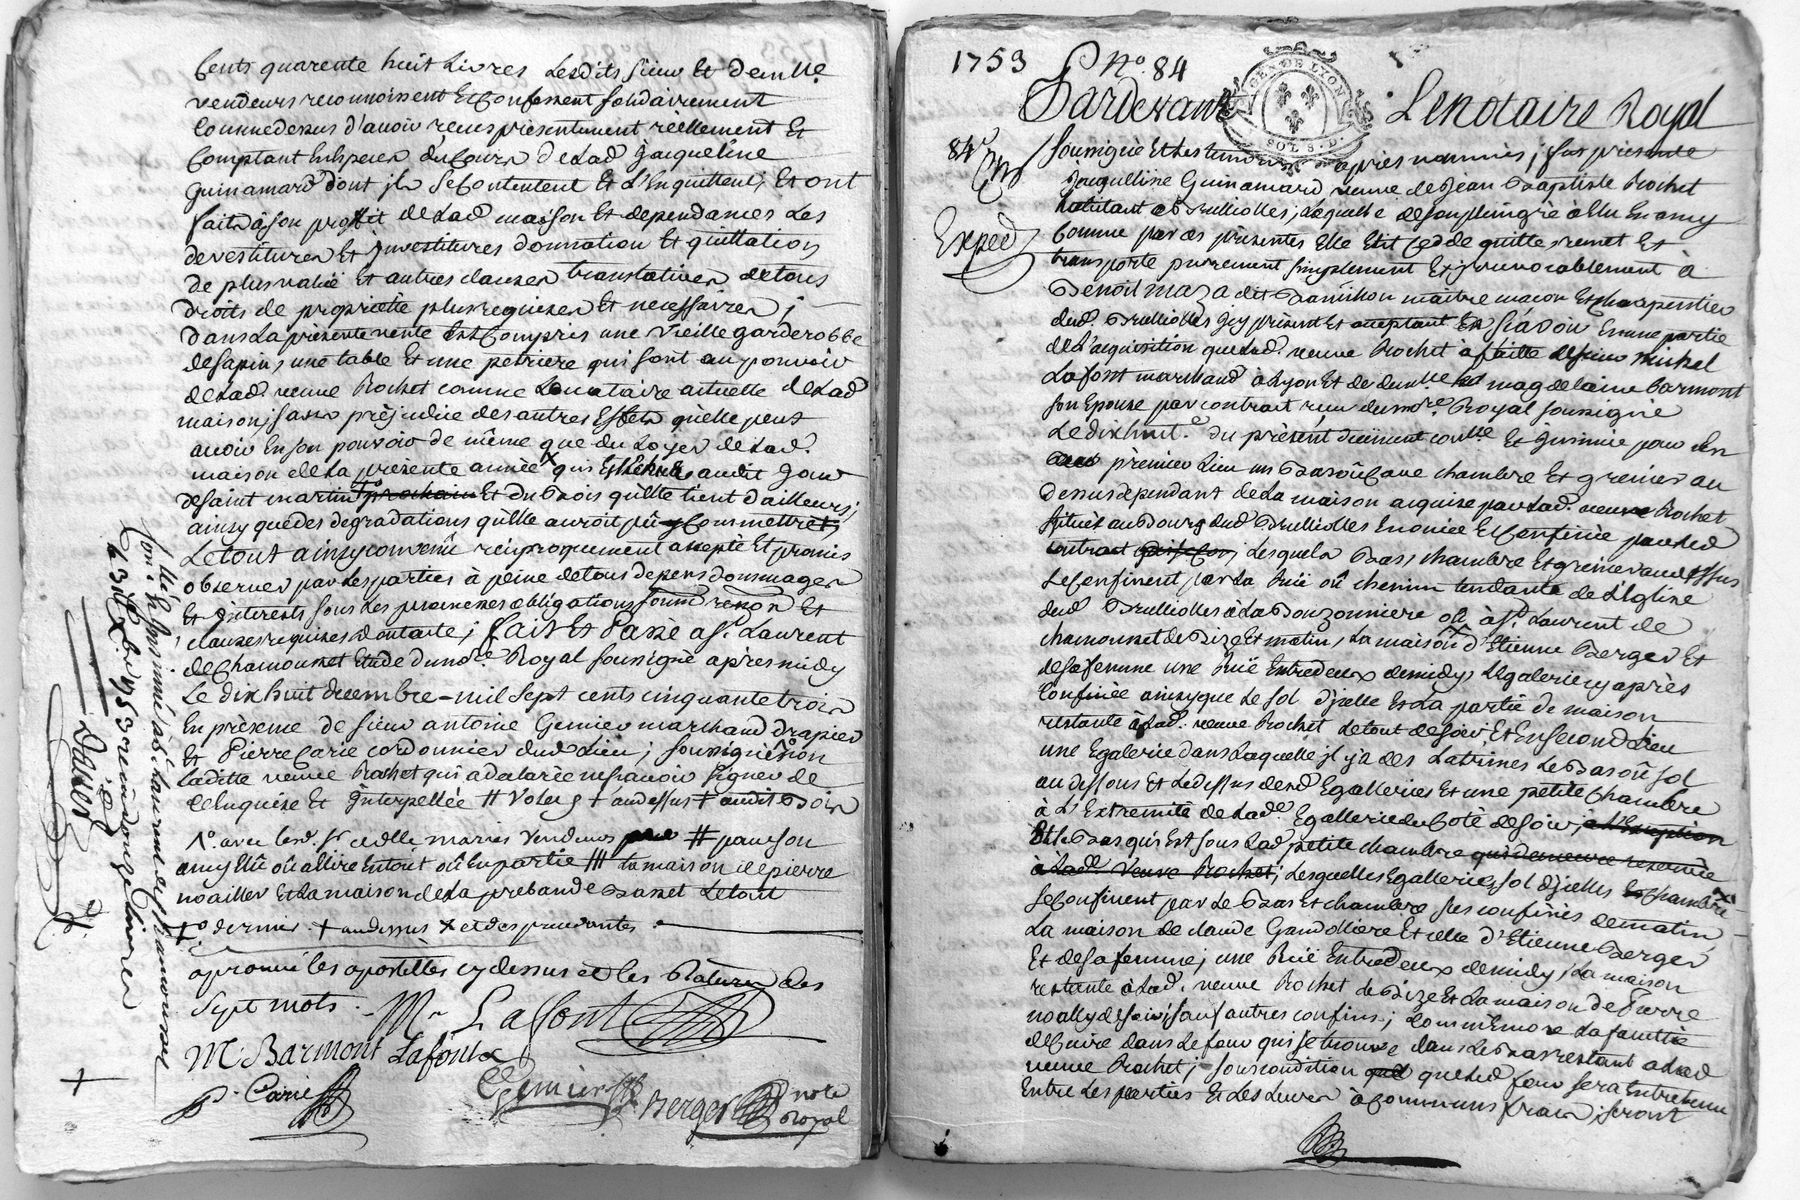 Cents quarente huit Livres Lesdits sieur Et demlle
vendeurs reconnoissent Et Confessent solidairement
Comme dessus d'avoir reçus présentement réellement Et
Comptant En Especes du Cours de Lad. Jacqueline
Guinamard dont ils se Contentent Et L'Enquittent; Et ont
fait à son proffit de Lad. maison Et dependances Les
devestitures Et Investitures donnation Et quittation
de plus valüe Et autres clauses translatives de tous
droits de propriété plus requises Et necessaires;
dans La présente vente Est Compris une Vieille garderobbe
de sapin, une table Et une petriere qui sont au pouvoir
de Lad. veuve Rochet comme Locataire actuelle de Lad.
maison, sans préjudice des autres Effets quelle peut
avoir En son pouvoir de même que du Loyer de Lad.
maison de La présente année x qui audit Jour
de saint martin prochain Et du Bois qu'elle tient d'ailleurs;
ainsy que des degradations qu'elle auroit pû y Commettre
Le tout ainsy convenû réciproquement accepté Et promis
observer par Les parties à peine de tous depens dommages
Et Interests sous Les promesses obligations soum. renon. Et
clauses requises dont acte; fait Et Passé a St. Laurent
de Chamousset Etude du no.re Royal soussigné après midy
Le dix huit decembre mil sept cents cinquante trois
En présence de sieur antoine Gemier marchand drapier
Et Pierre Carie cordonnier dud. Lieu; soussignés non
Laditte veuve Rochet qui a declarée ne sçavoir signer de
ce Enquise Et Interpellée # Voleus + audessus + audit Bois
1.° avec Lesd. Sr. et dlle mariés vendeurs # pour son
amy Elû où à Elire En tout où En partie ## La maison de pierre
noailler Et La maison de La prebande Basset Le tout
+° dernier + audessus x et des precedentes
aprouvé les apostilles cy dessus et les Ratures des
sept mots.
M. Lafont
M. Barmont Lafont
P. Carie
Gemier
Berger note Royal
Con.lé & Insinué à St. Laurent de Chamousset
Le 31 Xbre 1753 reçu onze Livres
Davet
1753 N.° 84
GEN. DE LYON
SOL S. D.
Pardevant Le notaire Royal
84
Exped.
soussigné Et Les temoins après nommés; fut présente
Jacquelline Guinamard veuve de Jean Baptiste Rochet
habitant a Brulliolles; Laquelle de son plein gré à Elu En amy
Comme par ces présentes Elle Elit cedde quitte remet Et
transporte purement simplement Et irrevocablement à
Benoit maza dit maitre maçon Et charpentier
dud. Brulliolles Icy présent Et acceptant Et sçavoir En une partie
de L'acquisition que Lad. veuve Rochet à faitte de sieur Michel
Lafont marchand à Lyon Et de demlle magdelaine barmont
son Epouse par contrat reçu du no.re Royal soussigné
Le dix huit.e du présent duëment con.lé Et Insinué pour
premier Lieu un Bas où Cave chambre Et grenier au
Dessus dependant de La maison acquise par Lad. veuve Rochet
située au Bourg dud. Brulliolles Enoncée Et Confinée par Led.
contrat Lesquels Bas, chambre Et grenier au dessus
Se Confinent par La Rüe où chemin tendante de L'Eglise
dud. Brulliolles à La Bouzonniere où à St. Laurent de
chamousset de Bize Et matin, La maison d'Etienne Berger Et
de sa femme une Rüe Entredeux de midy, L'Egalerie cy après
Confinée ainsy que Le sol d'jcelle Et La partie de maison
restante à Lad. veuve Rochet Le tout de soir, Et En second Lieu
une Egalerie dans Laquelle il y a des Latrines Le Bas où sol
au dessous Et Le dessus desd. Egalleries Et une petite Chambre
à L'Extremité de Lad. Egallerie du Coté de soir; a L'Exception
Et Le Bas qui Est sous Lad. petite chambre qui demeure reservée
à Lad. Veuve Rochet; Lesquelles Egalleries, sol d'jcelles Et chambre
se Confinent par Le Bas Et chambre sus confinés de matin,
La maison de claude Grandolliere Et celle d'Etienne Berger
Et de sa femme, une Rüe Entredeux de midy, La maison
restante à Lad. veuve Rochet de Bize Et La maison de Pierre
noally de soir; sauf autres confins; Comm'Encore La faculté
de Cuire dans Le four qui se trouve dans Le Bas restant à Lad.
veuve Rochet; sous condition que Led. four sera Entretenu
Entre Les parties Et Les Leurs à communs frais, seront